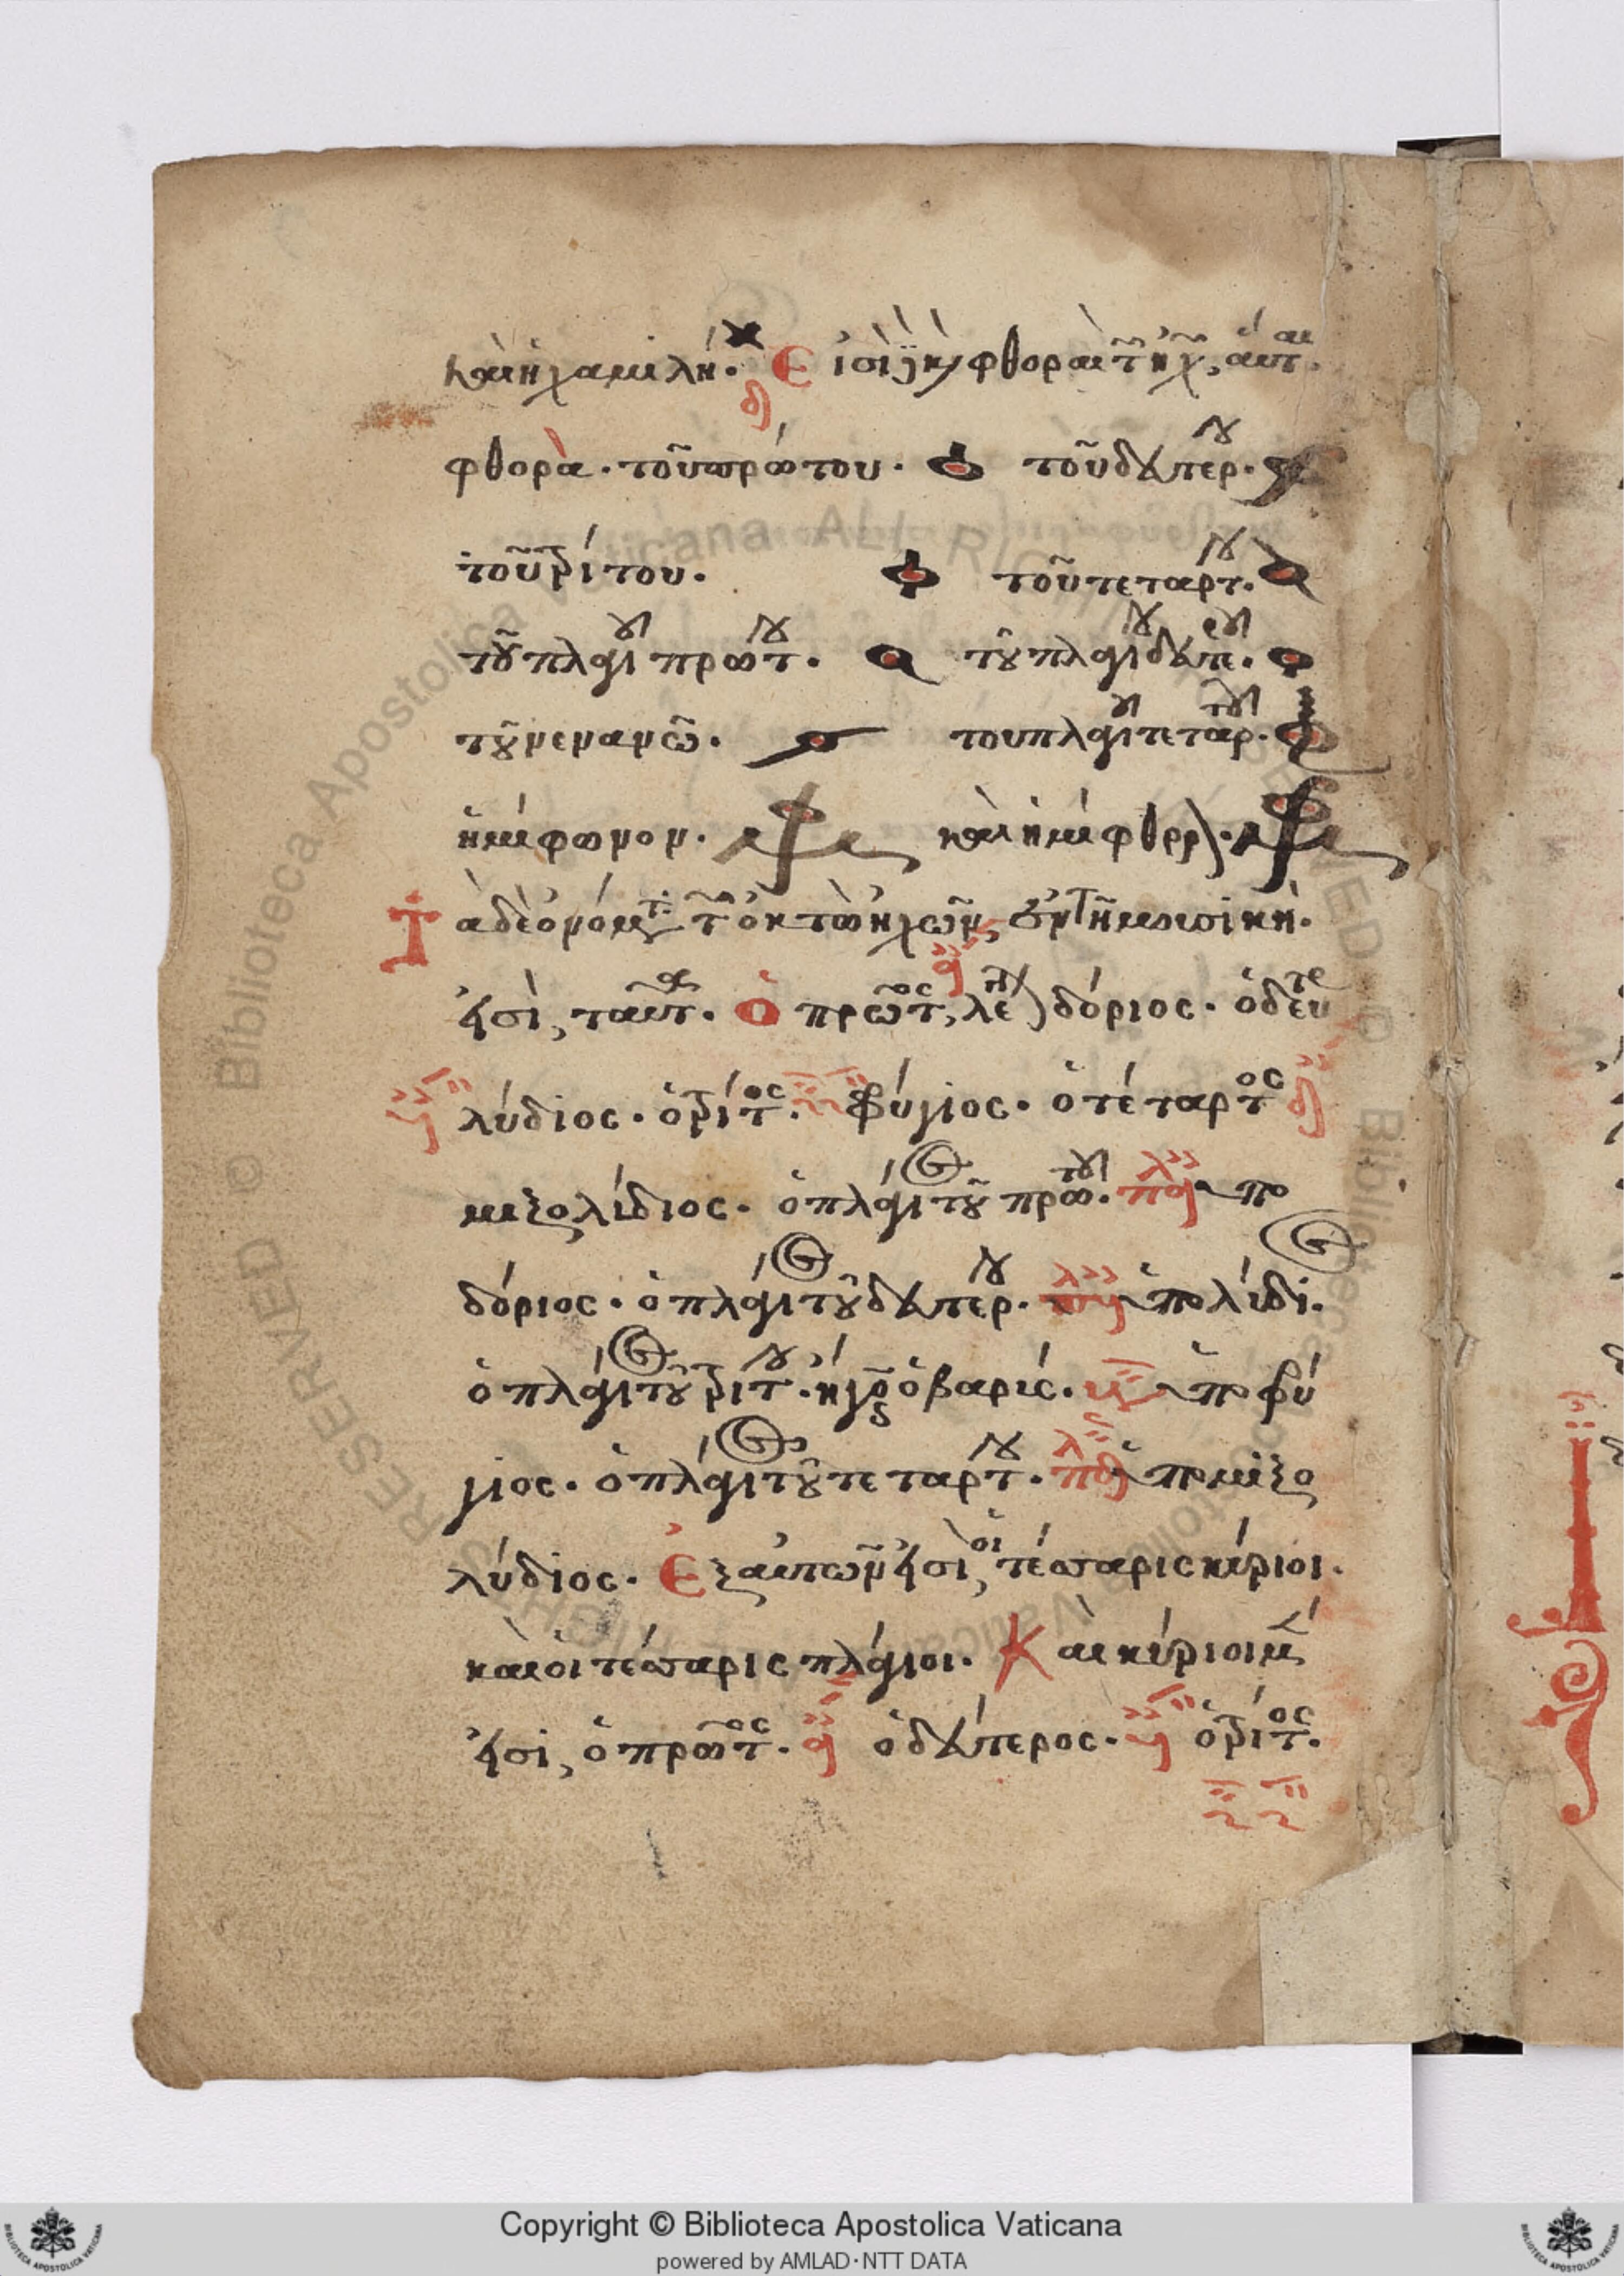 καὶ ἡ χαμιλή. Εἰσὶ καὶ φθοραὶ τῶν ἤχ, αὗται
φθορὰ. τοῦ πρώτου. τοῦ δευτέρου.
τοῦ τρίτου. τοῦ τετάρτου.
τοῦ πλαγίου πρώτου. τοῦ πλαγίου δευτέρου.
τοῦ νενανῶ. τοῦ πλαγίου τετάρτου.
ἡμίφωνον. καὶ ἡμίφθορον.
Τὰ δὲ ὀνόματα τῶν ὀκτὼ ἤχων, ἐν τῇ μουσικῇ.
εἰσὶ, ταῦτα. Ὁ πρῶτος, λέγεται δόριος. ὁ δεύτε
λύδιος. ὁ τρίτος. φύγιος. ὁ τέταρτος
μιξολίδιος. ὁ πλάγιος τοῦ πρώτου. ὑπο
δόριος. ὁ πλάγιος τοῦ δευτέρου. ὑπολίδιος.
ὁ πλάγιος τοῦ τρίτου. ἤγουν ὁ βαρίς. ὑποφύ
γιος. ὁ πλάγιος τοῦ τετάρτου. ὑπομιξο
λύδιος. Ἐξ αὐτῶν εἰσὶ, οἱ τέσσαρις κύριοι.
καὶ οἱ τέσσαρις πλάγιοι. Καὶ κύριοι μὲν
εἰσὶ, ὁ πρῶτος. ὁ δεύτερος. ὁ τρίτος.
Copyright © Biblioteca Apostolica Vaticana
powered by AMLAD·NTT DATA